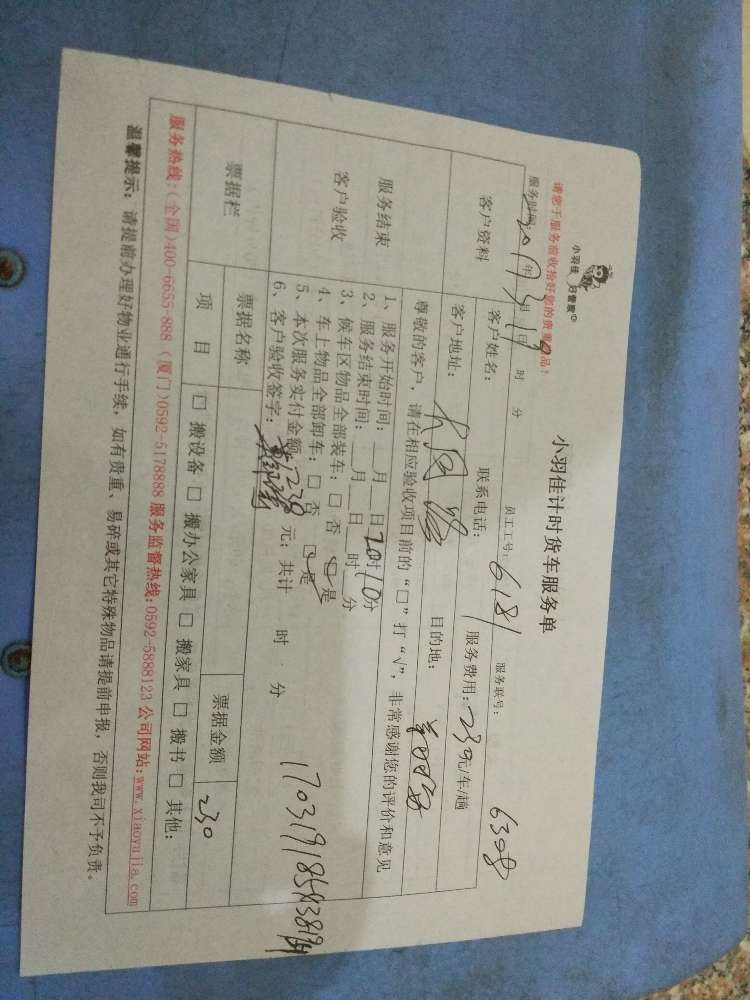 小羽佳 好管家
小羽佳计时货车服务单
请您于服务前收拾好您的贵重物品!
服务时间: 年 3月19日 时 分 员工工号: 6181 服务联号: 6308
客户资料
客户姓名: 联系电话: 服务费用: 230元/车/趟
客户地址: 目的地:
服务结束
客户验收
尊敬的客户,请在相应验收项目前的“□”打“√”,非常感谢您的评价和意见
1、服务开始时间:___月___日20时10分
2、服务结束时间:___月___日___时___分
3、候车区物品全部装车:□ 否 □ 是
4、车上物品全部卸车:□ 否 □ 是
5、本次服务实付金额: 230 元;共计 时 分
6、客户验收签字:
票据栏
票据名称 票据金额 230
项 目 □ 搬设备 □ 搬办公家具 □ 搬家具 □ 搬书 □ 其他:
服务热线:(全国)400-6655-888 (厦门)0592-5178888 服务监督热线:0592-5888123 公司网站:www.xiaoyujia.com
温馨提示:请提前办理好物业通行手续,如有贵重、易碎或其它特殊物品请提前申报,否则我司不予负责。